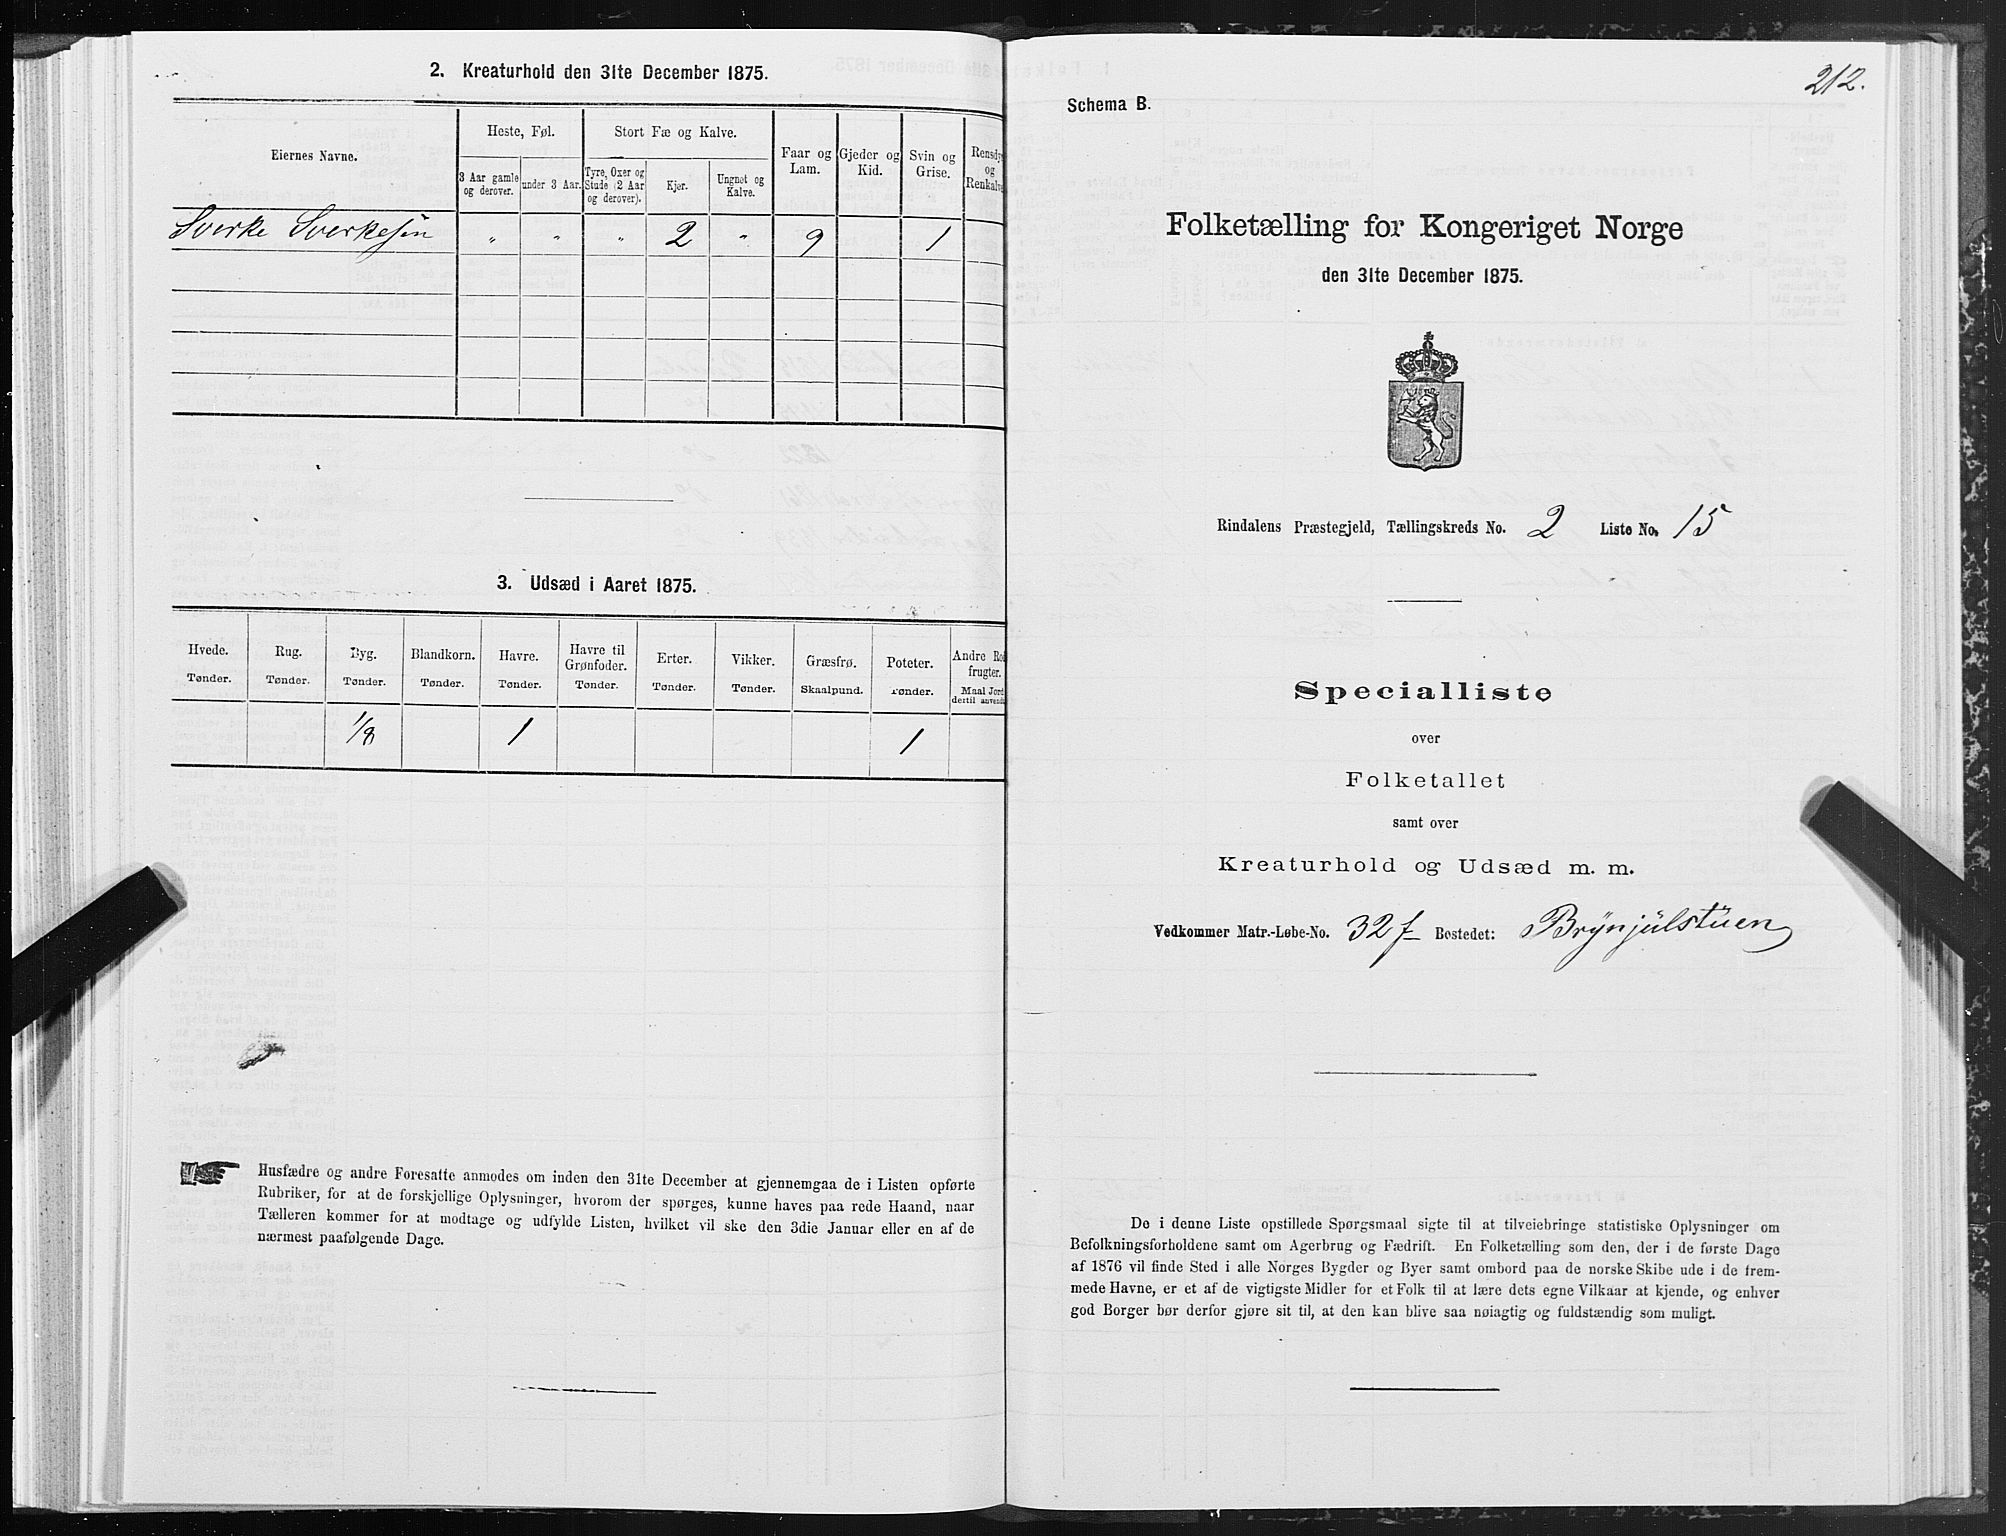 2. Kreaturhold den 31te December 1875.
Eiernes Navne.
Heste, Føl.
Stort Fæ og Kalve.
Faar og Lam.
Gjeder og Kid.
Svin og Grise.
Rensdyr og Renkalve
3 Aar gamle og derover.
under 3 Aar.
Tyre, Oxer og Stude (2 Aar og derover).
Kjør.
Ungnøt og Kalve.
Sverke Sverkesen " " " 2 " 9 1
3. Udsæd i Aaret 1875.
Hvede. Rug. Byg. Blandkorn. Havre. Havre til Grønfoder. Erter. Vikker. Græsfrø. Poteter. Andre Rodfrugter.
Tønder. Tønder. Tønder. Tønder. Tønder. Tønder. Tønder. Tønder. Skaalpund. Tønder. Maal Jord dertil anvendt
1/8 1 1
Husfædre og andre Foresatte anmodes om inden den 31te December at gjennemgaa de i Listen opførte
Rubriker, for at de forskjellige Oplysninger, hvorom der spørges, kunne haves paa rede Haand, naar
Tælleren kommer for at modtage og udfylde Listen, hvilket vil ske den 3die Januar eller en af de
nærmest paafølgende Dage.
212.
Schema B.
Folketælling for Kongeriget Norge
den 31te December 1875.
Rindalens Præstegjeld, Tællingskreds No. 2 Liste No. 15
Specialliste
over
Folketallet
samt over
Kreaturhold og Udsæd m. m.
Vedkommer Matr.-Løbe-No. 32f Bostedet: Brynjulstuen
De i denne Liste opstillede Spørgsmaal sigte til at tilveiebringe statistiske Oplysninger om
Befolkningsforholdene samt om Agerbrug og Fædrift. En Folketælling som den, der i de første Dage
af 1876 vil finde Sted i alle Norges Bygder og Byer samt ombord paa de norske Skibe ude i de frem-
mede Havne, er et af de vigtigste Midler for et Folk til at lære dets egne Vilkaar at kjende, og enhver
god Borger bør derfor gjøre sit til, at den kan blive saa nøiagtig og fuldstændig som muligt.